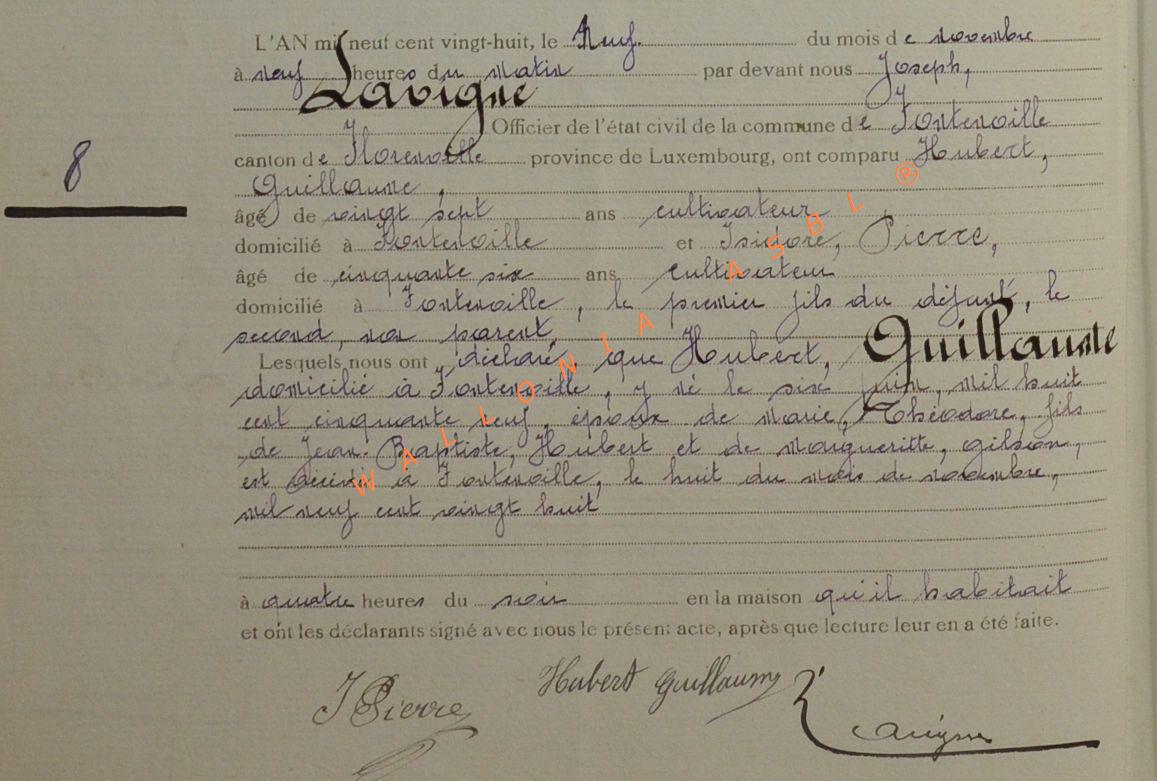 L'AN mil neuf cent vingt-huit, le Neuf. du mois de novembre
à neuf heures du matin par devant nous Joseph,
Lavigne
Officier de l'état civil de la commune de Fontenoille
8
canton de Florenville province de Luxembourg, ont comparu Hubert,
Guillaume,
âgé de vingt sept ans cultivateur
domicilié à Fontenoille et Isidore, Pierre,
âgé de cinquante six ans cultivateur
domicilié à Fontenoille, le premier fils du défunt, le
second, non parent
Lesquels nous ont déclaré que Hubert, Guillaume
domicilié à Fontenoille, y né le six juin, mil huit
cent cinquante neuf, époux de Marie, Théodore, fils
de Jean-Baptiste, Hubert et de Margueritte, Gilson,
est décédé à Fontenoille, le huit du mois de novembre,
mil neuf cent vingt huit
à quatre heures du soir en la maison qu'il habitait
et ont les déclarants signé avec nous le présent acte, après que lecture leur en a été faite.
J Pierre Hubert Guillaume Lavigne
WALLONIA ASBL ®